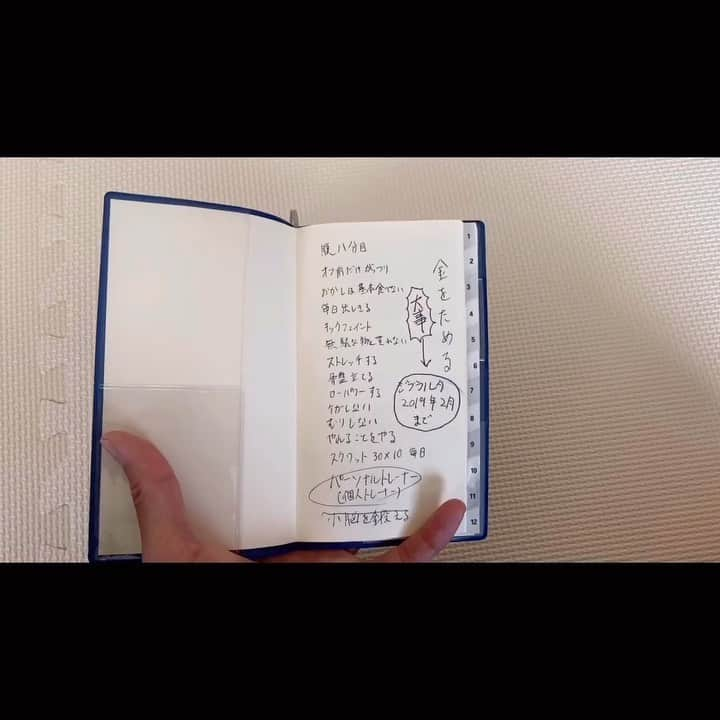 腹八分目
オフ前だけがっつり
おかしは基本食べない
毎日出しきる
キックフェイント
無駄な物を買わない
ストレッチする
骨盤立てる
ローパワーする
ケガしない
むりしない
やれることをやる
スクワット 30×10 毎日
パーソナルトレーナー
(個人トレーナー)
小脳を鍛える
金をためる
大事
2019年2月
まで
1
2
3
4
5
6
7
8
9
10
11
12